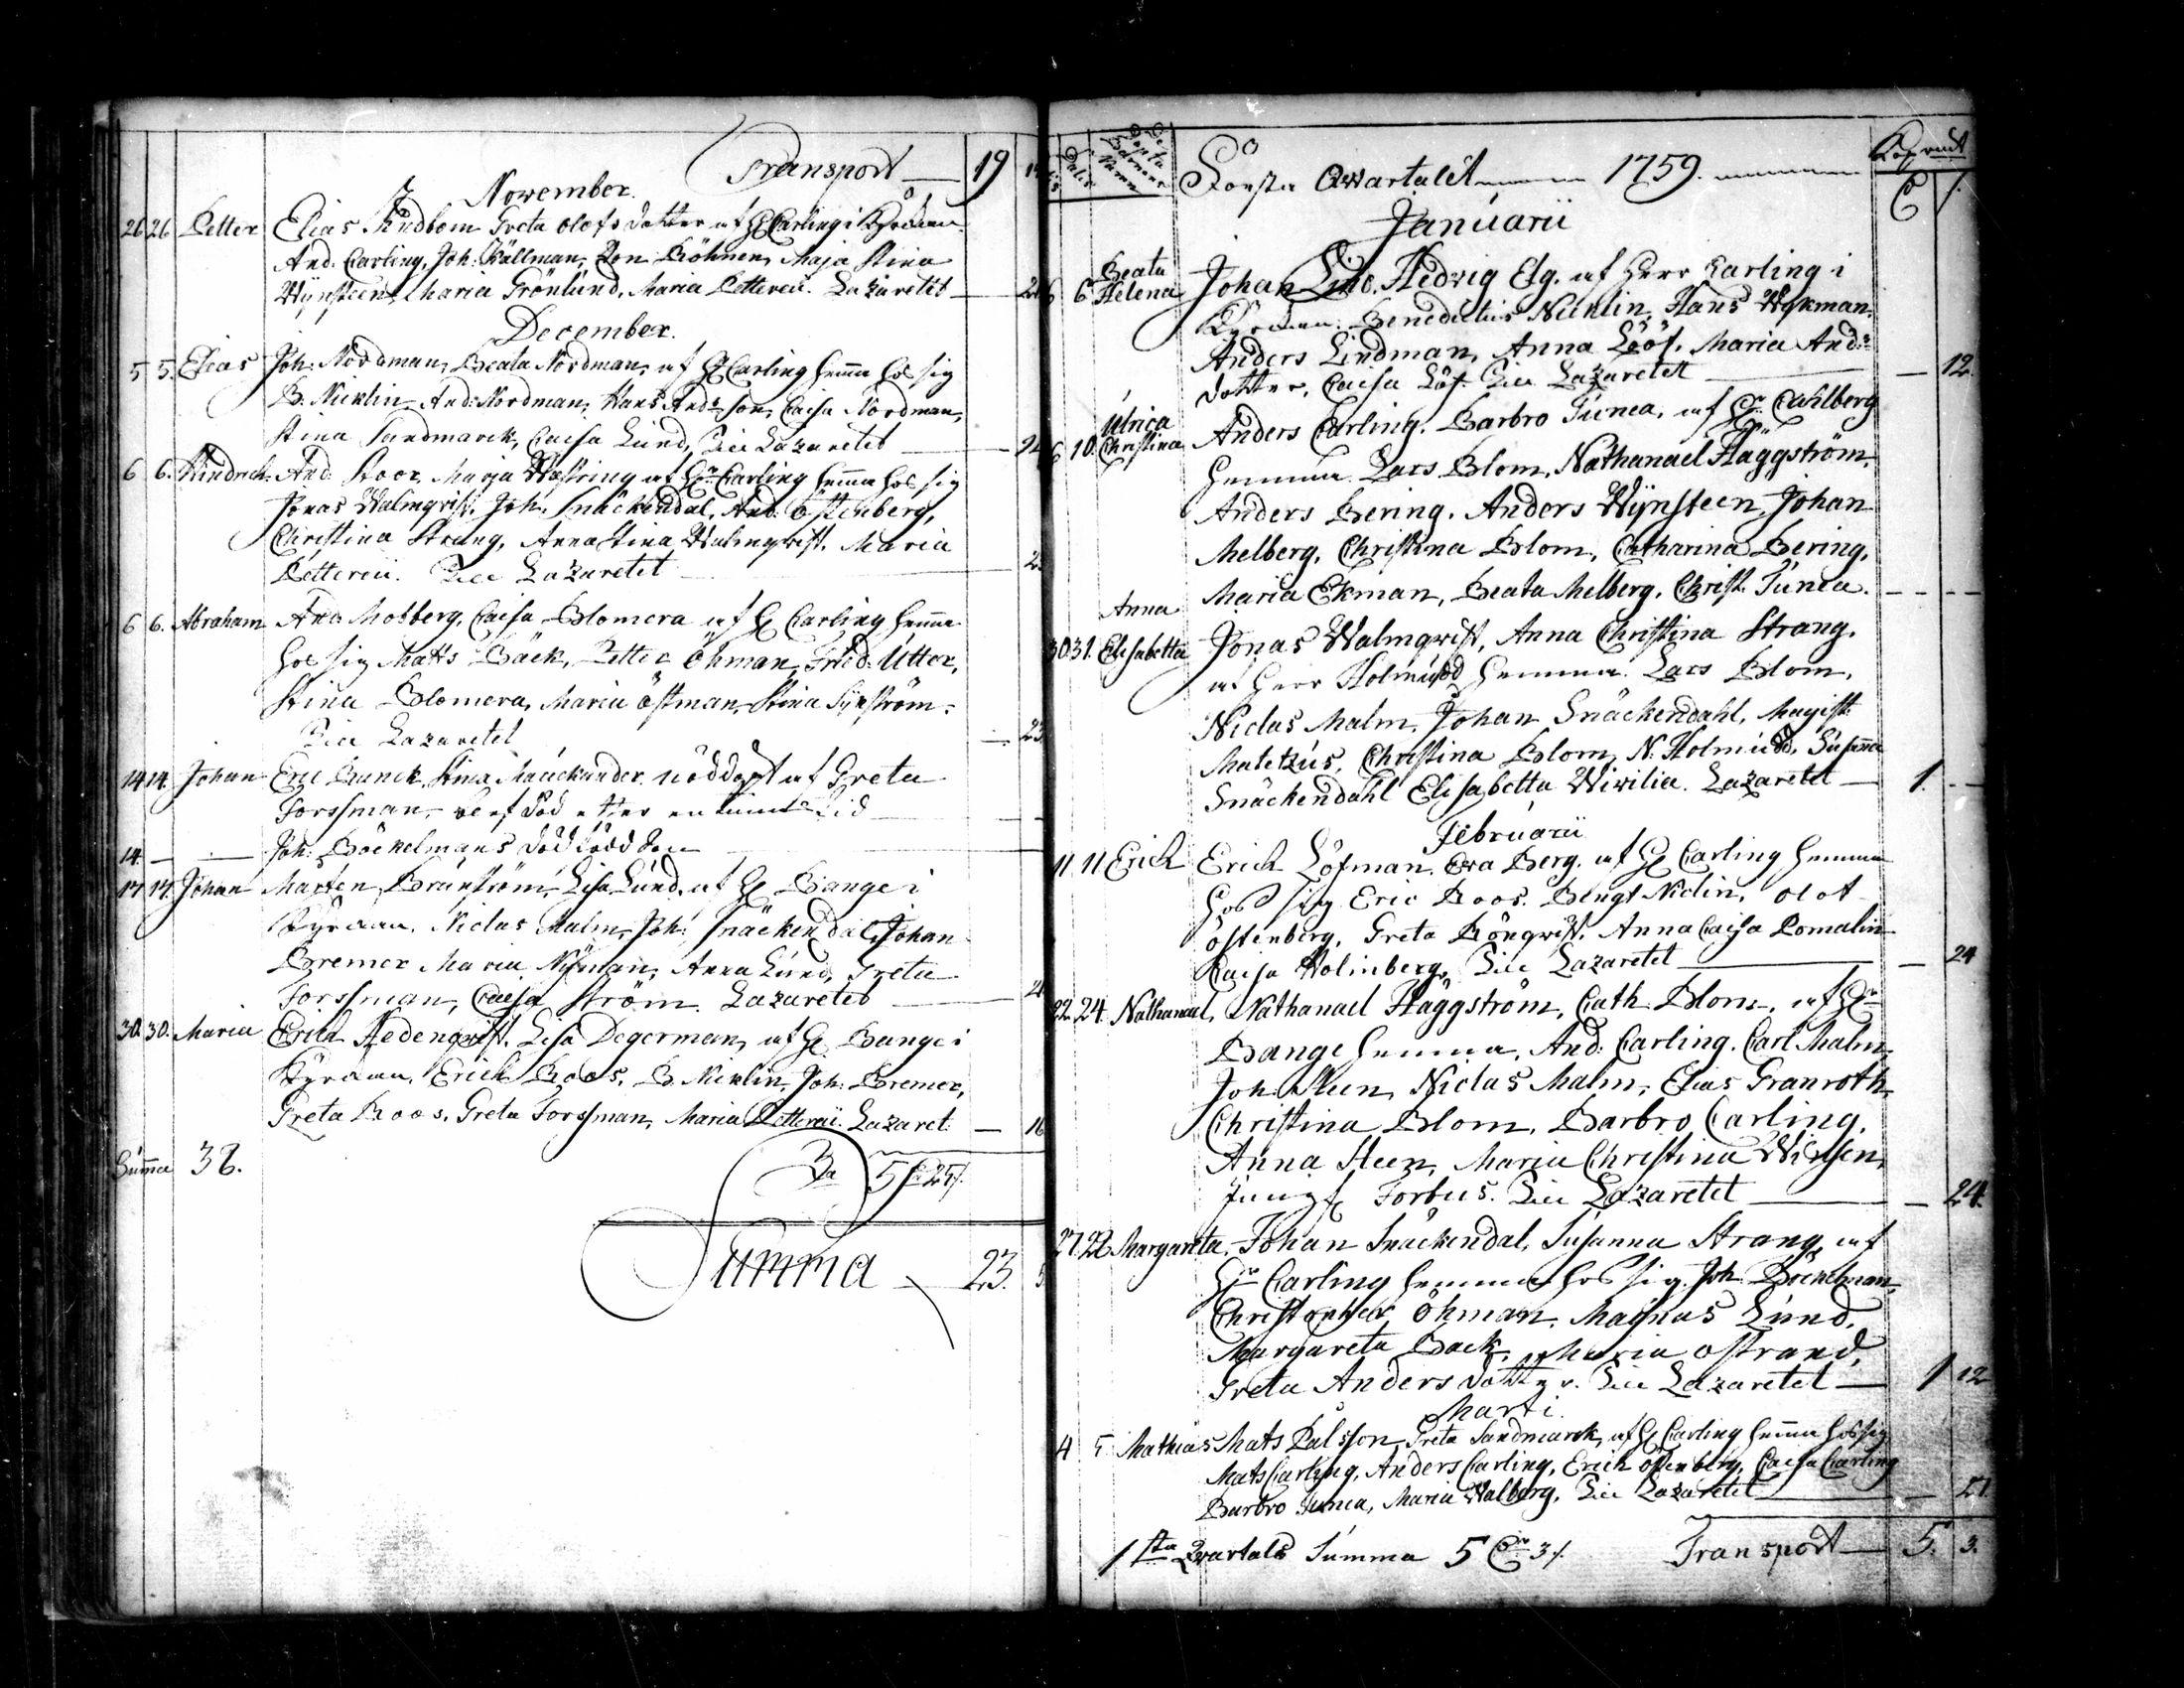 Transport — 19
November.
26 26 Petter Elias Lindbom Greta Olofs dotter af H Carling i Kyrkan
And. Carling, Joh: Källman, Maja Stina
Wynsteen, Maria Grönlund, Maria Petterei. Lazaretet —
December.
5 5. Elias Joh: Nordman, Beata Nordman, af H Carling hemma hos sig
B. Nicklin And: Nordman, Hans And:son, Caisa Nordman,
Stina Sandmarck, Caisa Lund, Till Lazaretet —
6 6. Hindrich. And: Roos, Maja Westring af Hr Carling hemma hos sig
Jonas Walmqvist, Joh: Snäckendal, And: Östenberg,
Christina Strang, Anna Stina Walmqvist, Maria
Petterei. Till Lazaretet —
6 6. Abraham And: Moberg, Caisa Blomera af H Carling hemma
hos sig Matts Bäck, Petter Öhman, Fred: Utter,
Stina Blomera, Maria Östman, Stina Synström.
Till Lazaretet — 23
14 14 Johan Eric Bunck, Stina nöddöpt af Greta
Forssman, blef död efter en timmes tid —
14 — — Joh: Böckelmans dödfödd son —
17 17 Johan Mårten Brånström, Lisa Lund, af H Bange i
Kyrkan. Niclas Malm, Joh: Snäckendal, Johan
Bremer Maria Nyman, Anna Lund, Greta
Forssman, Caisa Ström. Lazaretet —
30. 30. Maria Erich Hedenqvist, Lisa Degerman, af H Bange i
Kyrkan, Erich Roos, B. Nicklin, Joh: Bremer,
Greta Roos, Greta Forssman, Maria Petterei. Lazaret. — 16
Summa 38.
5 25
Summa — 23.
Datis Döpta Barnens Namn Första Qwartalet 1759.
Januarii
Beata
6 Helena Johan Lind. Hedvig Elg. af Herr Carling i
Kyrkan. Benedictus Nicklin, Hans Wykman,
Anders Lindman, Anna Lööf, Maria And:s
dotter, Caisa Löf. Till Lazaretet — 12.
Ulrica
6 10. Christina Anders Carling. Barbro Tunea, af Hr Dahlberg
hemma. Lars Blom, Nathanael Häggström,
Anders Bering. Anders Wynsteen, Johan
Melberg, Christina Blom, Catharina Bering,
Maria Ekman, Beata Melberg, Christ. Tunea. - - - -
Anna
30 31. Elisabetta Jonas Walmqwist, Anna Christina Strang.
af Herr Holmudd hemma. Lars Blom,
Niclas Malm, Johan Snäckendahl, Magist:
Matetzus, Christina Blom, N. Holmudd, Susanna
Snäckendahl Elisabetta Wivilia. Lazaretet — 1. - -
Februarii
11 11 Erich Erich Löfman. Eva Berg. af H Carling hemma
hos sig Eric Roos. Bengt Niclin, Olof
Östenberg, Greta Rönqwist, Anna Caisa Pomalin
Caisa Holmberg, Till Lazaretet — 24
22 24 Nathanael, Nathanael Häggström, Cath: Blom, af Hr
Bange hemma, And: Carling. Carl Malm,
Joh: Steen, Niclas Malm, Elias Granroth,
Christina Blom, Barbro Carling,
Anna Steen, Maria Christina
Jungf Forbus. Till Lazaretet — 24.
27 28 Margareta, Johan Snäckendal, Susanna Strang, af
Hr Carling hemma hos sig. Joh: Böckelman,
Christopher Öhman, Magnus Lund,
Margareta Back, Maria Ostrand,
Greta Anders dotter. Till Lazaretet — 1 12
Marti.
4 5 Mathias Mats Pålsson, Greta Sandmarck, af H Carling hemma hos sig
Mats Carling, Anders Carling, Erich Östenberg, Caisa Carling
Barbro Tunea, Maria Walberg, Till Lazaretet — 27
1sta Qvartals Summa 5 3 Transport — 5. 3.